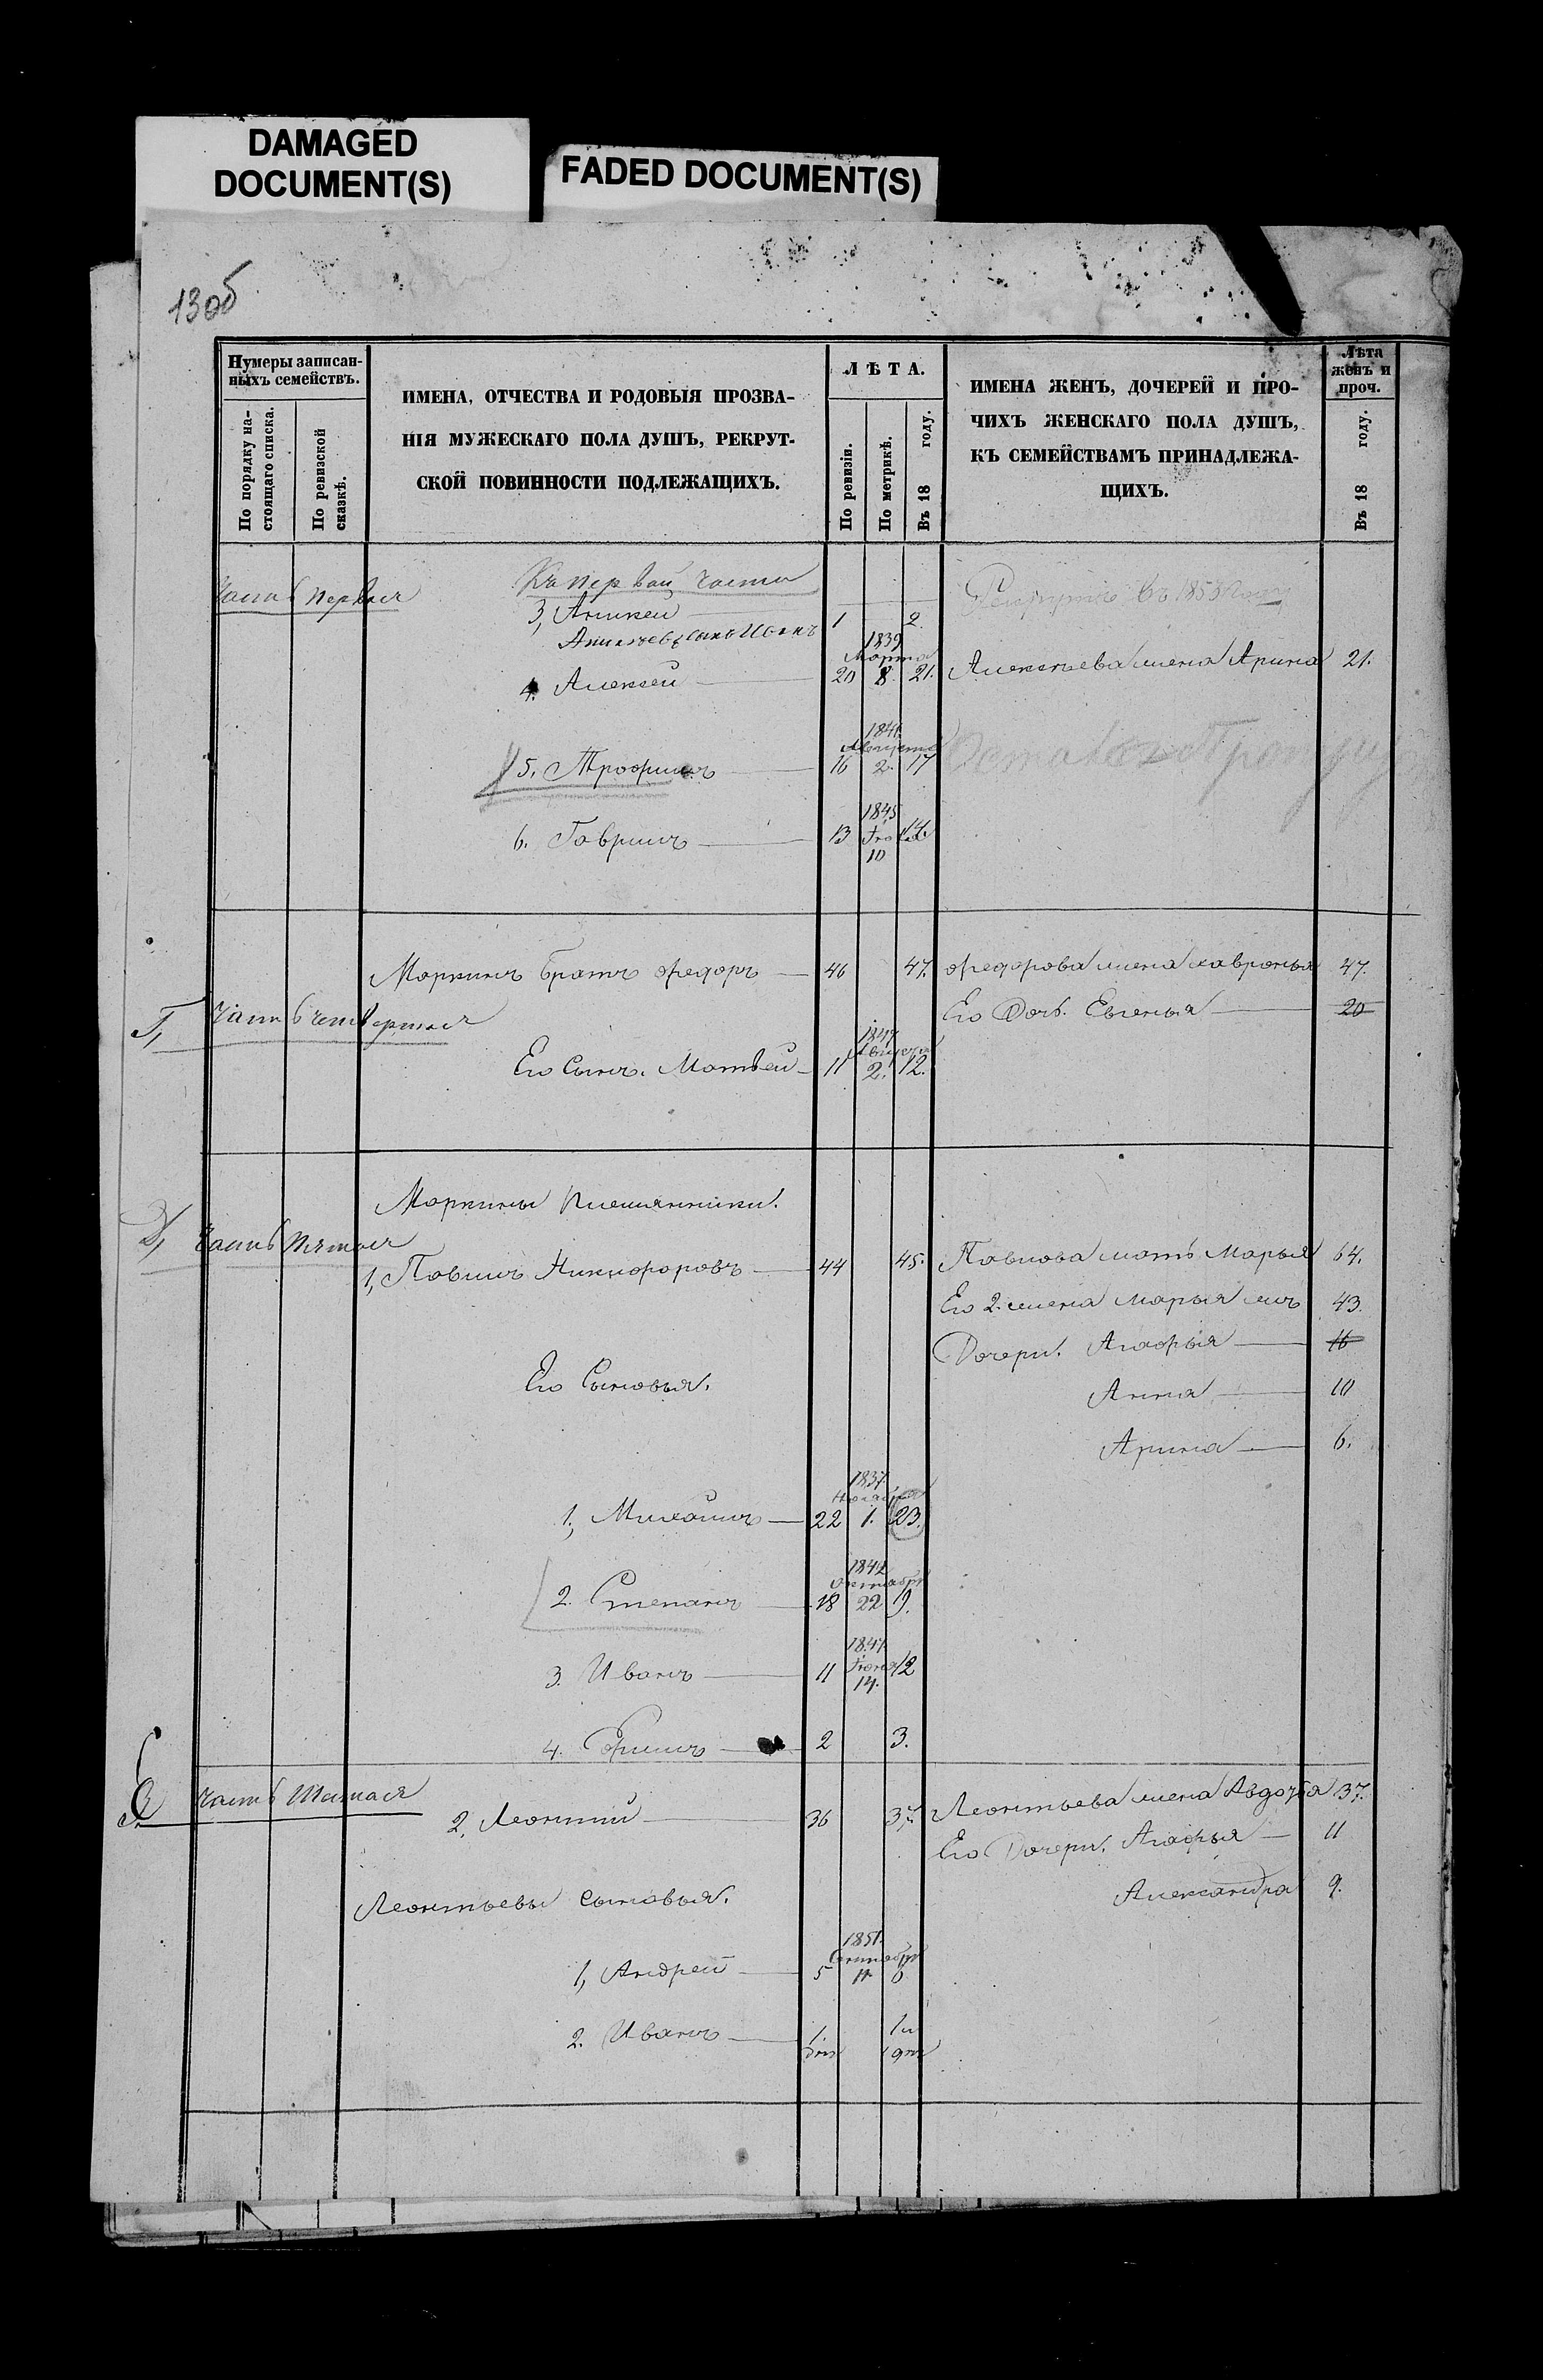 DAMAGED
DOCUMENT(S)
FADED DOCUMENT(S)
13об
Нумеры записан-
ныхъ семействъ.
По порядку на-
стоящаго списка.
По ревизской
сказкѣ.
ИМЕНА, ОТЧЕСТВА И РОДОВЫЯ ПРОЗВА-
НІЯ МУЖЕСКАГО ПОЛА ДУШЪ, РЕКРУТ-
СКОЙ ПОВИННОСТИ ПОДЛЕЖАЩИХЪ.
ЛѢТА.
По ревизіи.
По метрикѣ.
Въ 18 году.
ИМЕНА ЖЕНЪ, ДОЧЕРЕЙ И ПРО-
ЧИХЪ ЖЕНСКАГО ПОЛА ДУШЪ,
КЪ СЕМЕЙСТВАМЪ ПРИНАДЛЕЖА-
ЩИХЪ.
Лѣта
женъ и
проч.
Въ 18 году.
Часть первая
Къ первой части
3, Аникей
сынъ Иванъ 1 2.
1839
Марта
4. Алексей 20 8. 21. Алексѣева жена Арина 21.
1841.
Августа
5. Трофимъ 16 2. 17
1845
6. Гаврилъ 13 Іюля 14.
10
Маркинъ братъ Федоръ 46 47. Федорова жена Хавронья 47.
Г, Часть четвертая
Его Дочь. Евгенья 20
1847
Августа
Его Сынъ. Матвей 11 2. 12.
Маркины племянники.
Д, Часть пятая
1, Павилъ Никифоровъ 44 45. Павлова мать Марья 64.
Его 2. жена Марья 43.
Дочери. Агафья 16
Его Сыновья.
Анна 10
Арина 6.
1837.
Ноября
1, Михаилъ 22 1. 23.
1842
Октября
2. Степанъ 18 22 19.
1847
3. Иванъ 11 Іюня 12
14.
4. Ефимъ 2 3.
Е, Часть Шестая
2, Леонтий 36 37. Леонтьева жена Авдотья 37.
Его Дочери. Агафья 11
Александра 9.
Леонтьевы сыновья.
1851.
Сентября
1, Андрей 5 11 6
2. Иванъ 1. 1 и
дни